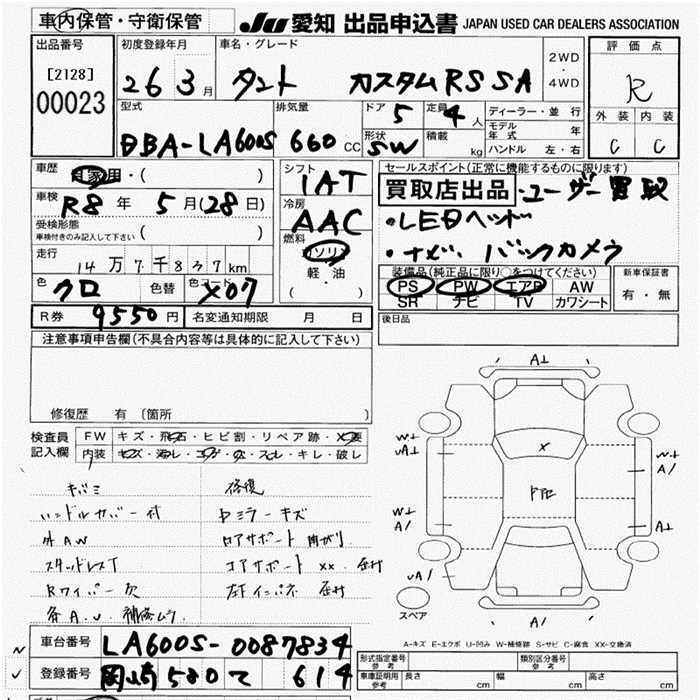 車内保管・守衛保管
JU 愛知 出品申込書 JAPAN USED CAR DEALERS ASSOCIATION
出品番号
[2128]
00023
初度登録年月
26 3月
車名・グレード
タント カスタムRS SA
2WD
・
4WD
評価点
R
外装 内装
C C
型式
DBA-LA600S
排気量
660 CC
ドア
5
定員
4人
形状
SW
積載
kg
ディーラー・並行
モデル年式 年
ハンドル 左・右
車歴
自家用・( )
車検
R8年 5月(28日)
受検形態
車検付きのみ記入して下さい ( )
走行
14万7千837km
色
クロ
色替
色コード
X07
シフト
IAT
冷房
AAC
燃料
ガソリン
軽・油
( ・ )
セールスポイント(正常に機能するものに限ります)
買取店出品・ユーザー買取
・LEDヘッド
・ナビ、バックカメラ
装備品(純正品に限り○をつけてください)
PS PW エアB AW
SR ナビ TV カワシート
新車保証書
有・無
R券 9550円
名変通知期限 月 日
後日品
注意事項申告欄(不具合内容等は具体的に記入して下さい)
修復歴 有 〔箇所 〕
検査員
記入欄
FW キズ・飛石・ヒビ割・リペア跡・X要
内装 キズ・汚レ・コゲ・穴・スレ・キレ・破レ
キバミ
ハンドルカバー付
外AW
スタッドレスT
Rワイパー欠
各A.U. 補修ムラ
修復
Dミラーキズ
ロアサポート 曲がり
コアサポート XX. 歪み
左下インパネ 歪み
A⊥
W⊥
UA⊥
W⊥
A/
UA/
W⊥
A/
A⊥
A/
X
スペア
A-キズ E-エクボ U-凹み W-補修跡 S-サビ C-腐食 XX-交換済
車台番号 LA600S-0087834
登録番号 岡崎 580 て 614
形式指定番号
参考
類別区分番号
参考
車庫証明用
参考
長さ cm 幅 cm 高さ cm